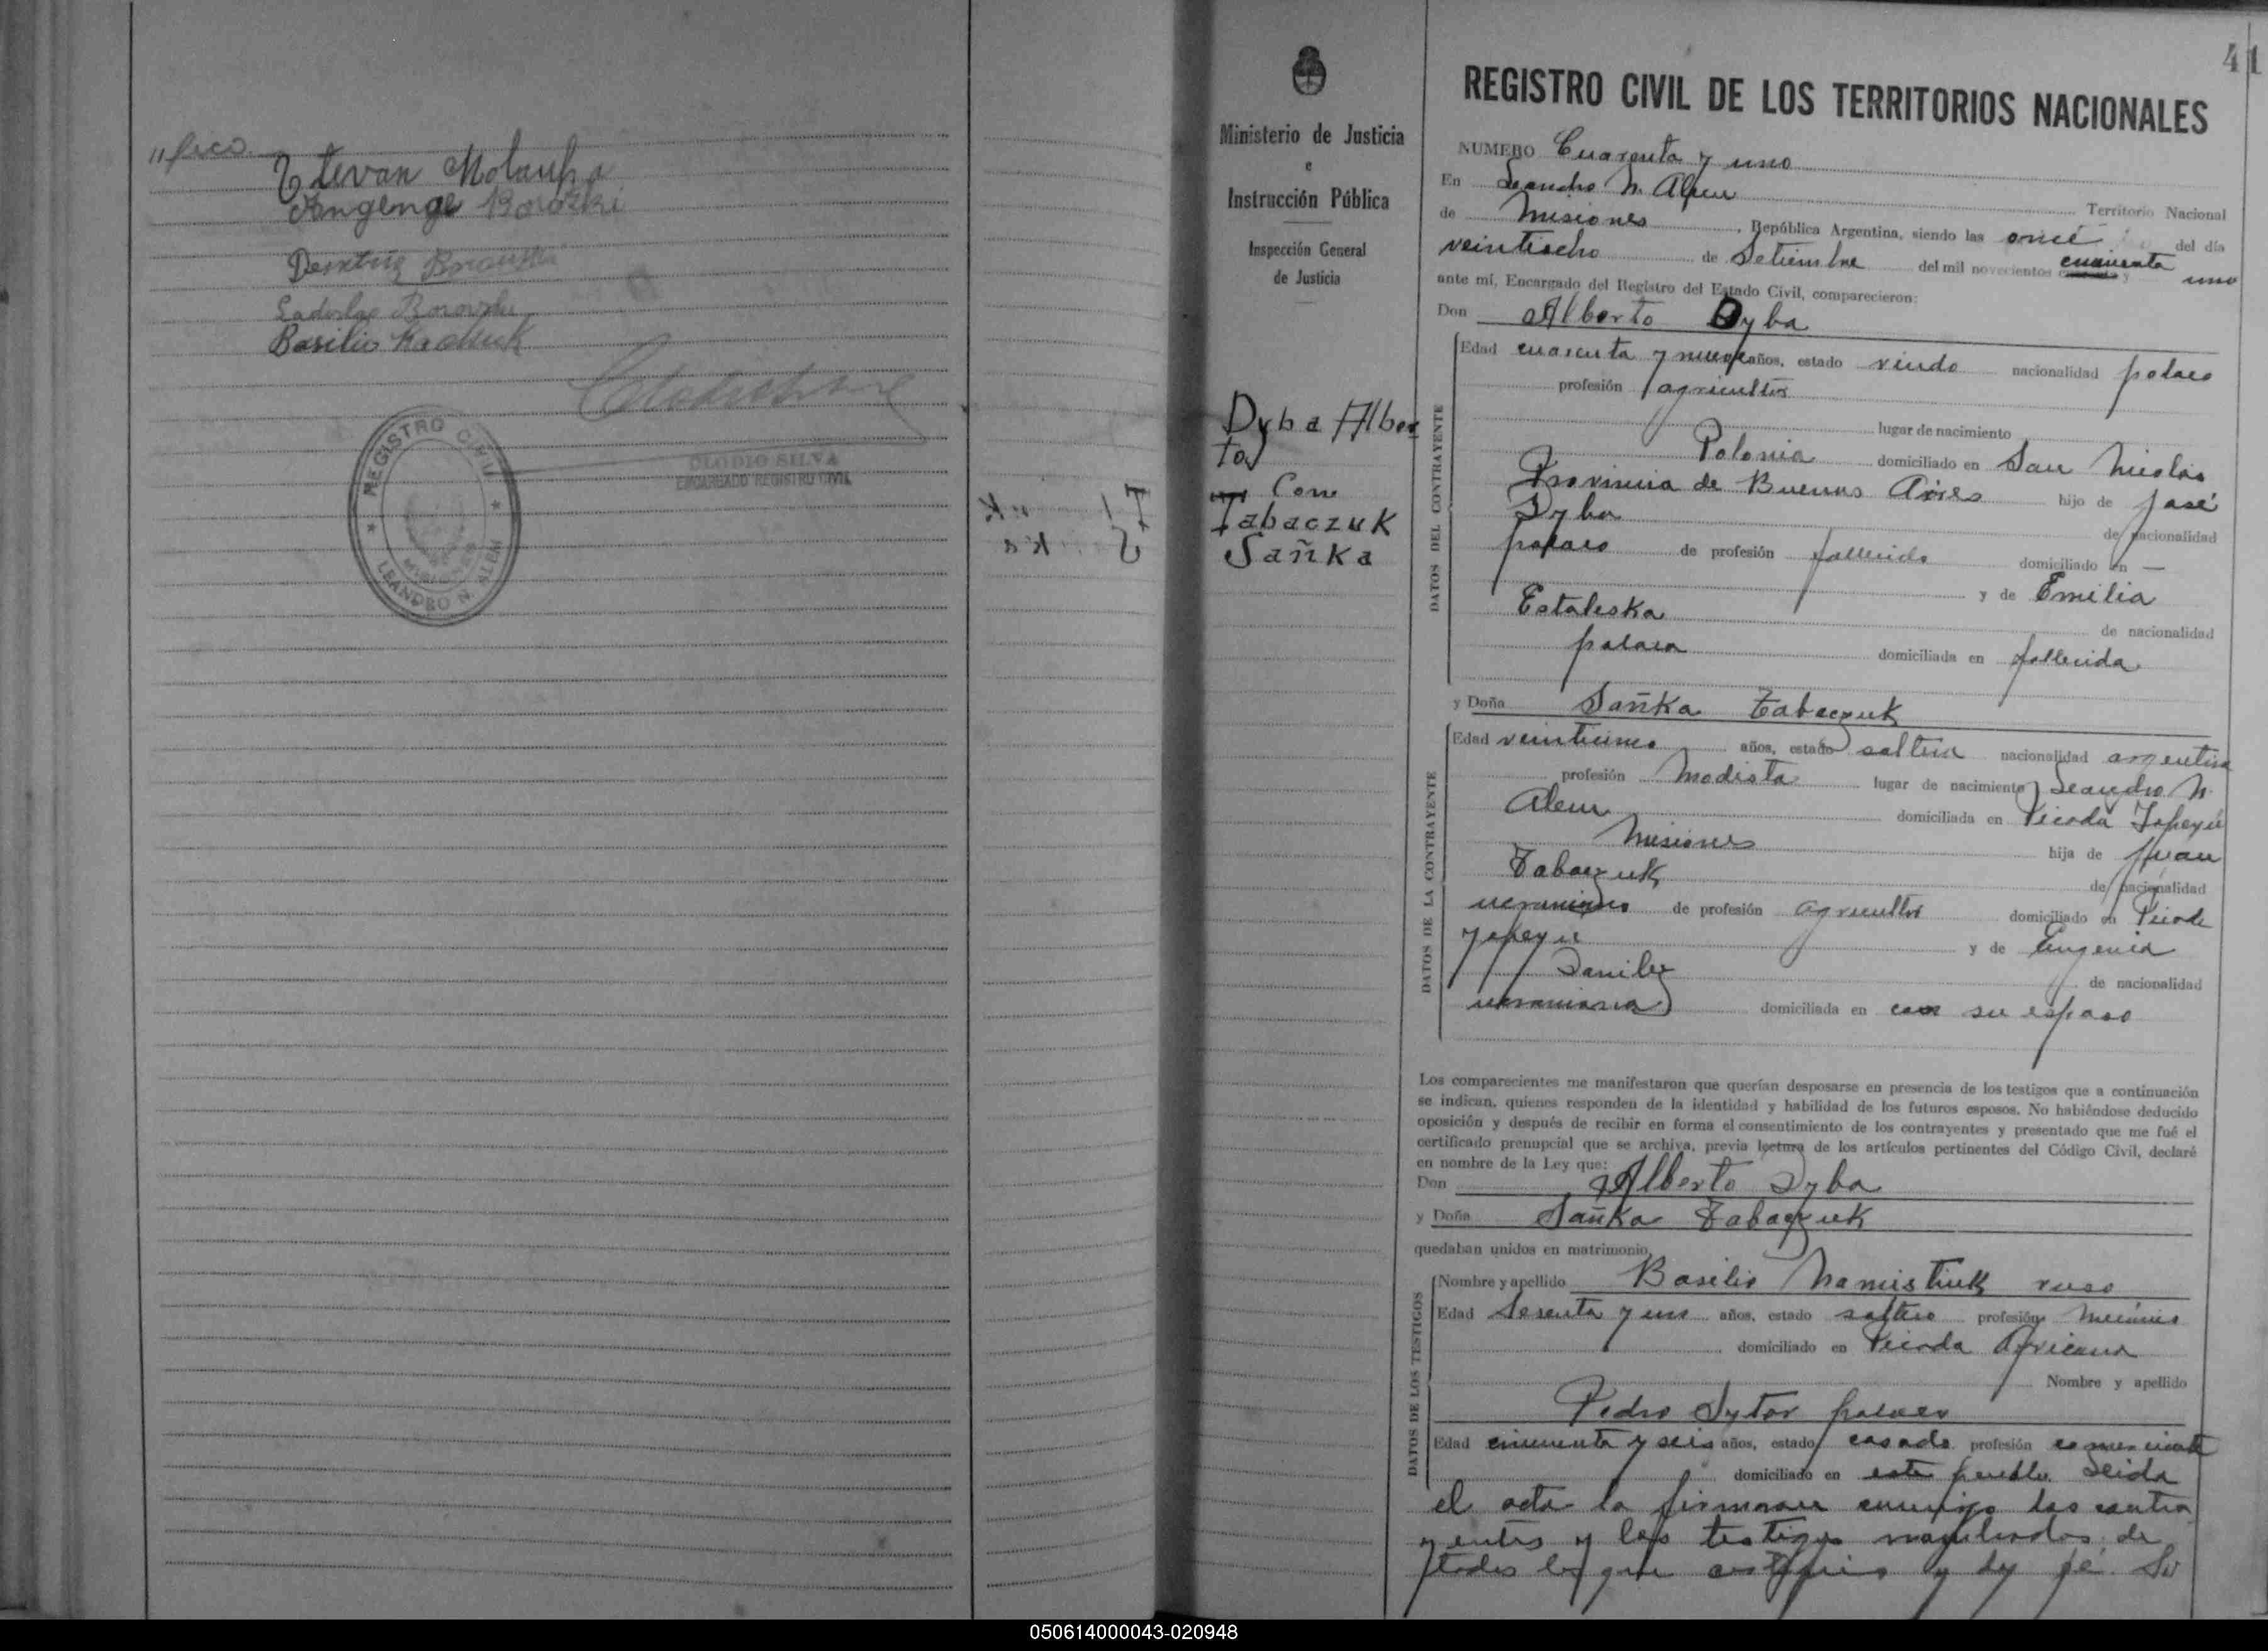 "fico
Estevan
Angenge Borozki
Demtrig
Ladislao
Basilio
REGISTRO CIVIL
MISIONES
LEANDRO N. ALEM
CLODIO SILVA
ENCARGADO REGISTRO CIVIL
Ministerio de Justicia
e
Instrucción Pública
Inspección General
de Justicia
Dyba Alber
to
Con
Tabaczuk
Sañka
41
REGISTRO CIVIL DE LOS TERRITORIOS NACIONALES
NUMERO Cuarenta y uno
En Leandro N. Alem
Territorio Nacional
de Misiones, República Argentina, siendo las once del día
veintiocho de Setiembre del mil novecientos cuarenta y uno
ante mí, Encargado del Registro del Estado Civil, comparecieron:
Don Alberto Dyba
DATOS DEL CONTRAYENTE
Edad cuarenta y nueve años, estado viudo nacionalidad polaco
profesión agricultor
lugar de nacimiento
Polonia domiciliado en San Nicolas
Provincia de Buenos Aires hijo de José
Dyba de nacionalidad
polaco de profesión fallecido domiciliado en —
y de Emilia
Estaleska de nacionalidad
polaca domiciliada en fallecida
y Doña Sañka Tabaczuk
DATOS DE LA CONTRAYENTE
Edad veinticinco años, estado soltera nacionalidad argentina
profesión Modista lugar de nacimiento Leandro N.
Alem domiciliada en Picada Yapeyú
Misiones hija de Juan
Tabaczuk de nacionalidad
ucraniano de profesión agricultor domiciliado en Picada
Yapeyu y de Eugenia
Daniluz de nacionalidad
ucraniana domiciliada en con su esposo
Los comparecientes me manifestaron que querían desposarse en presencia de los testigos que a continuación
se indican, quienes responden de la identidad y habilidad de los futuros esposos. No habiéndose deducido
oposición y después de recibir en forma el consentimiento de los contrayentes y presentado que me fué el
certificado prenupcial que se archiva, previa lectura de los artículos pertinentes del Código Civil, declaré
en nombre de la Ley que:
Don Alberto Dyba
y Doña Sañka Tabaczuk
quedaban unidos en matrimonio.
DATOS DE LOS TESTIGOS
Nombre y apellido Basilio Namistiuk ruso
Edad Sesenta y uno años, estado soltero profesión Mecánico
domiciliado en Picada Africana
Nombre y apellido
Pedro Sytor polaco
Edad cincuenta y seis años, estado casado profesión comerciante
domiciliado en este pueblo. Leida
el acta la firmaron conmigo los contra
yentes y los testigos nombrados; de
todos lo que certifico y doy fé. So